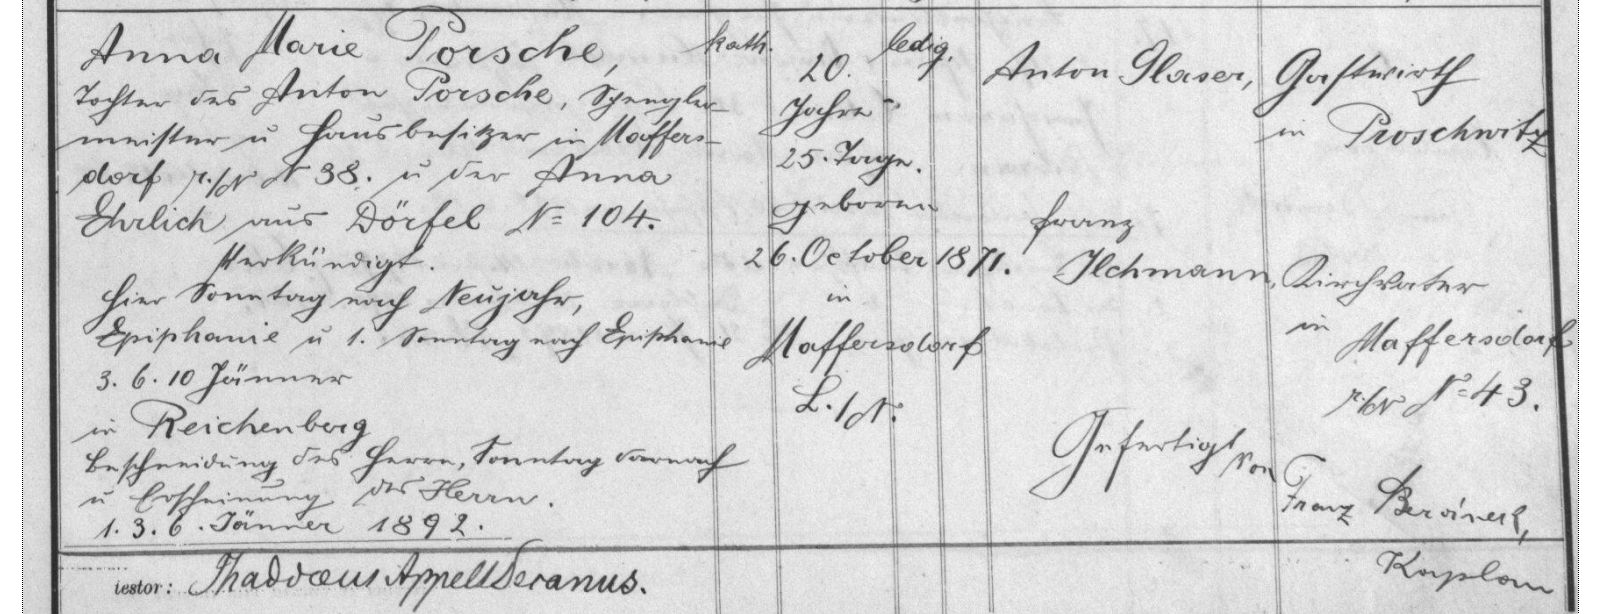 Anna Marie Porsche,
Tochter des Anton Porsche, Spengler-
meister u Hausbesitzer in Maffers-
dorf r./N N 38. u der Anna
Ehrlich aus Dörfel N= 104.
Verkündigt.
hier Sonntag nach Neujahr,
Epiphanie u 1. Sonntag nach Epiphanie
3. 6. 10 Jänner
in Reichenberg
Beschneidung des Herrn, Sonntag darnach
u Erscheinung des Herrn.
1. 3. 6. Jänner 1892.
kath.
ledig.
20.
Jahre
25. Tage.
geboren
26. October 1871.
in
Maffersdorf
L./N.
Anton Glaser, Gastwirth
in Proschwitz
Franz
Ilchmann, Kirchvater
in Maffersdorf
r./N N= 43.
Gefertigt von
Franz
Kaplan
testor: Thaddaeus Appelt Decanus.